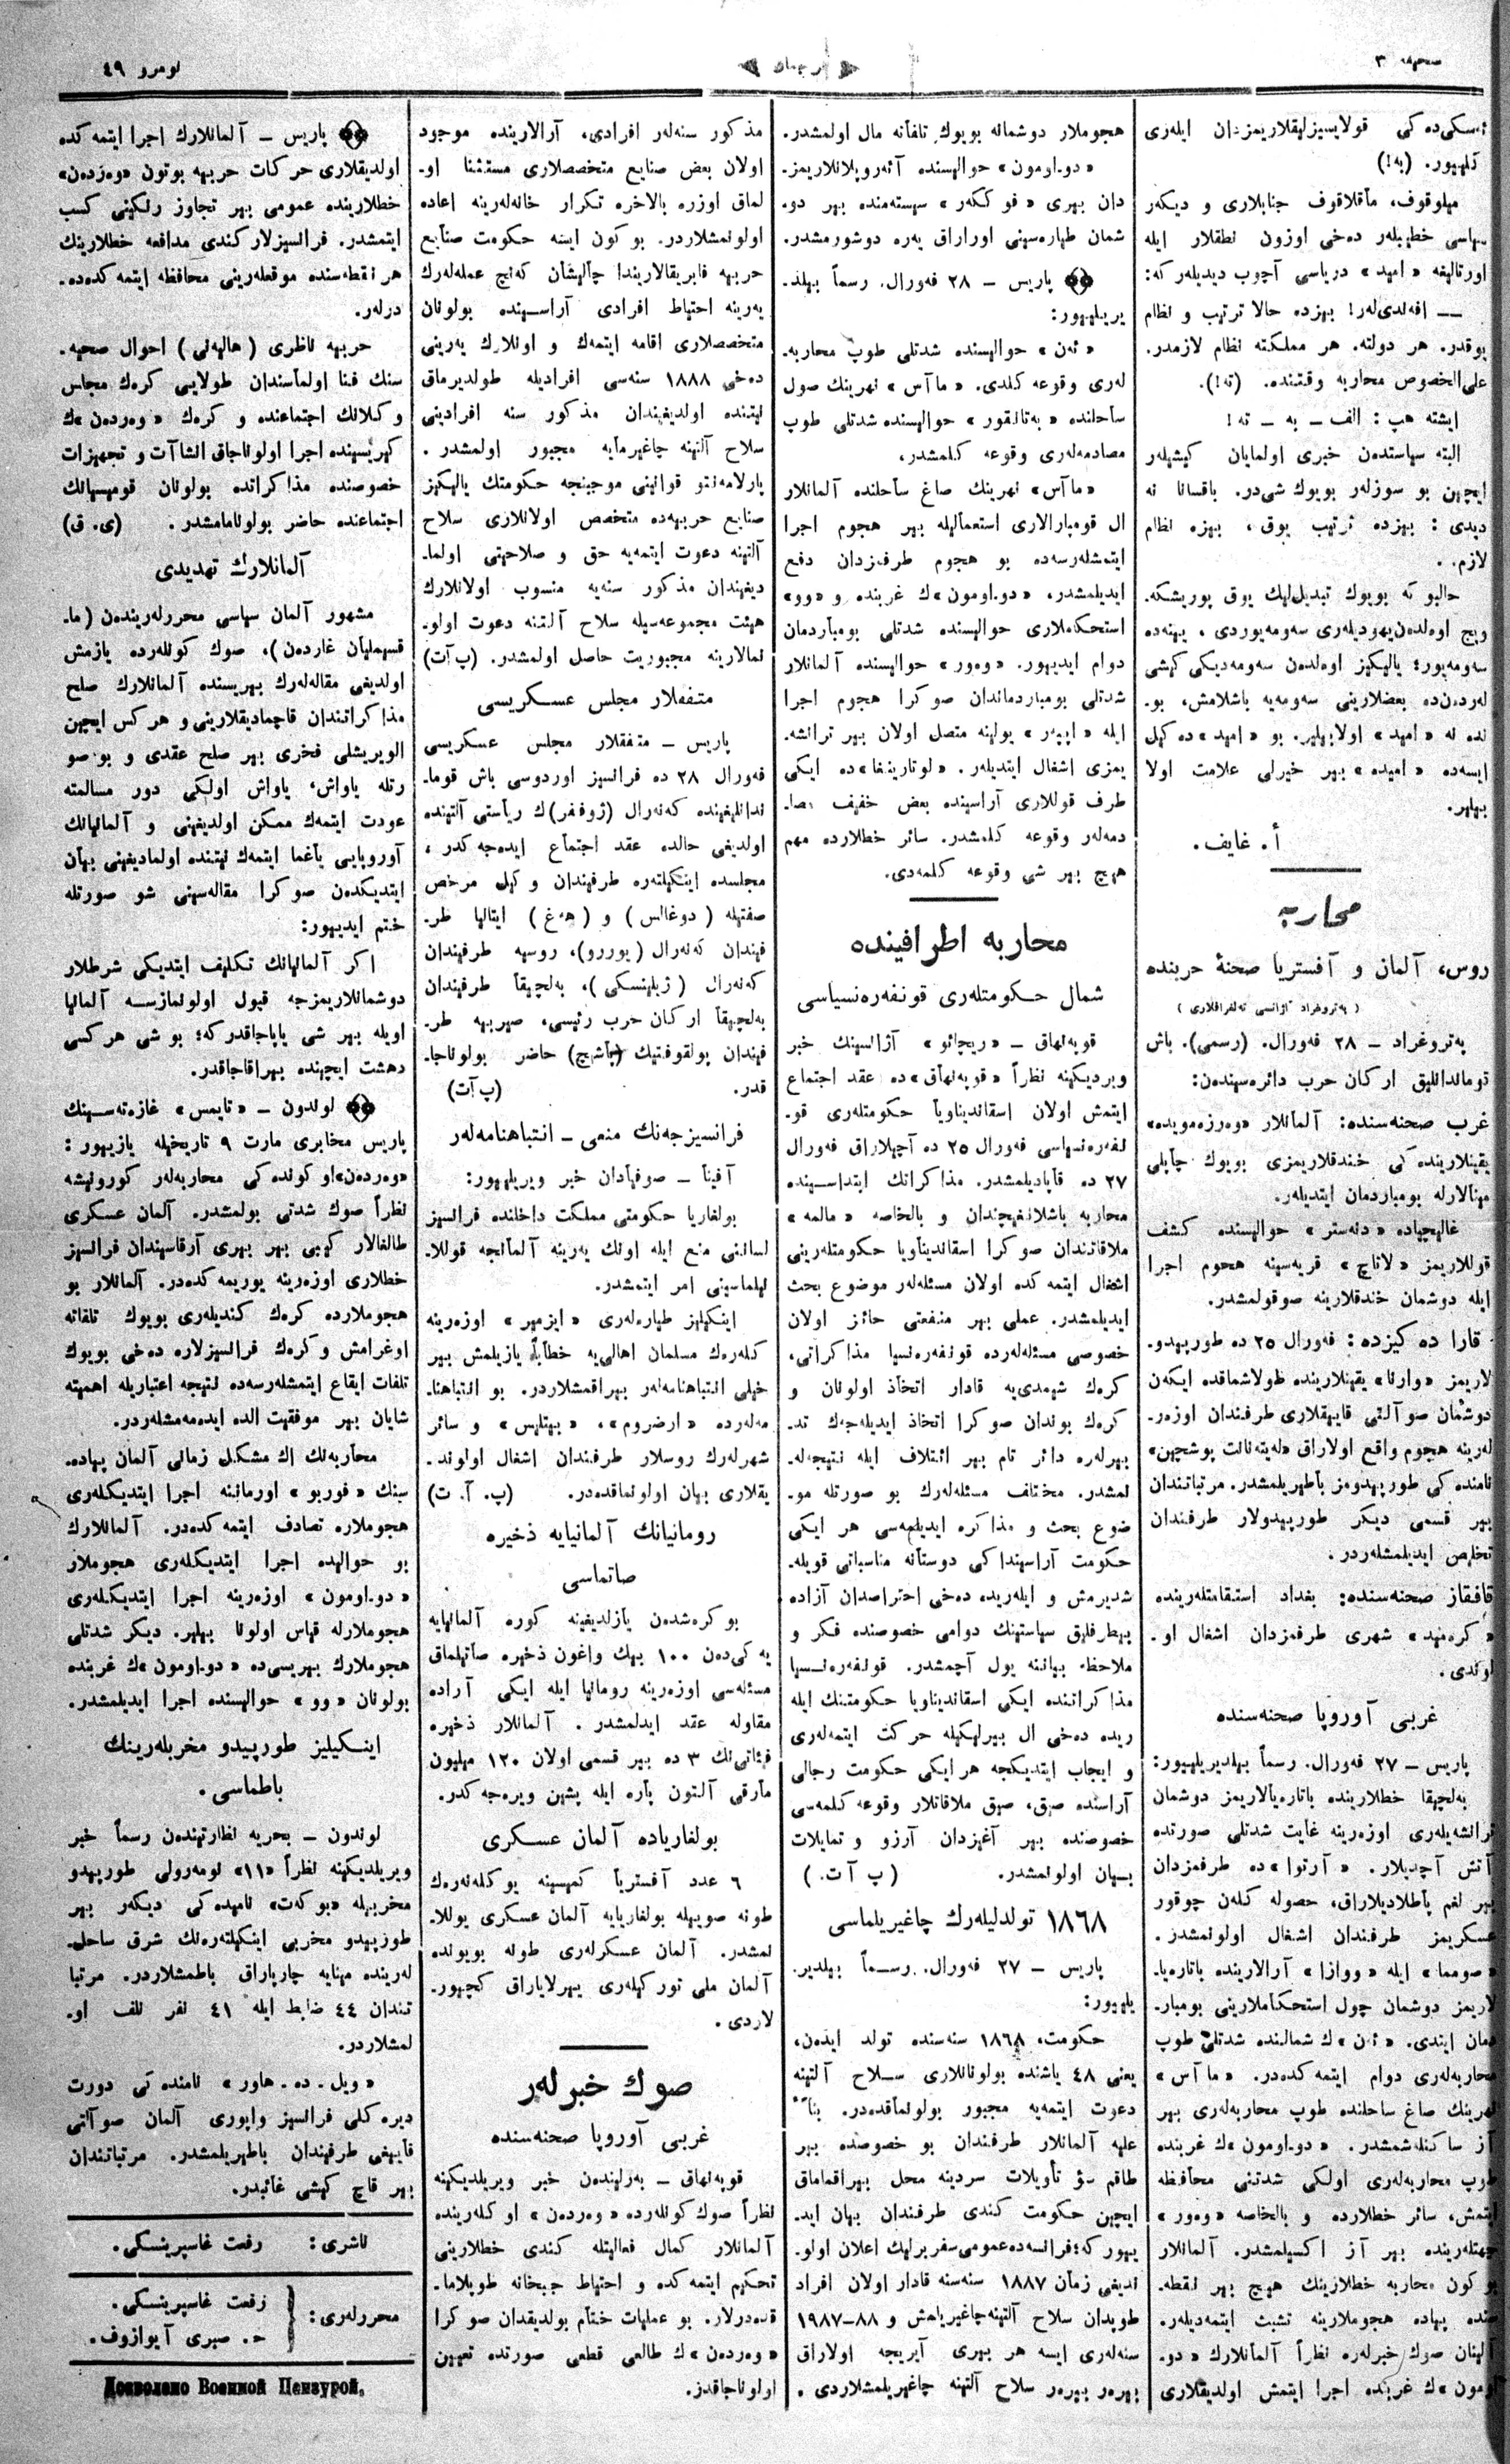 صحیفه ۳
ترجمان
نومرو ٤٩
ئەسكی‌ده‌كی قولایسیزلیقلاریمزدان ایله‌ری
گلیپور. (به!)
میلوقوف، ماقلاقوف جنابلاری و دیگەر
سیاسی خطیبلەر دەخی اوزون نطقلار ایله
اورتالیغه «امید» دریاسی آچوب دیدیلەر كه:
— افەندی‌لەر! بیزده حالا ترتیب و نظام
یوقدر. هر دولته. هر مملكته نظام لازمدر.
علی‌الخصوص محاربه وقتنده. (ته!).
ایشته هپ: الف — به — ته!
البته سیاستدن خبری اولمایان كیشیلەر
ایچین بو سوزلەر بویوك شی‌در. باقسانا نه
دیدی: بیزده ترتیب یوق، بیزه نظام
لازم.
أ. غایف.
محاربه
روس، آلمان و آفستریا صحنهٔ حربنده
(پەتروغراد آژانسی تەلغرافلاری)
پەتروغراد — ۲۸ فەورال. (رسمی). باش
قوماندانلیق اركان حرب دائرەسیندن:
غرب صحنەسنده: آلمانلار «وەرزەمویده»
یقینلارینده‌كی خندقلاریمزی بویوك چاپلی
مینالارله بومباردمان ایتدیلەر.
غالیچیاده «دنەستر» حوالیسنده كشف
قوللاریمز «لاتاچ» قریەسینه هجوم اجرا
ایله دوشمان خندقلارینه صوقولمشدر.
قارا دەكیزده: فەورال ۲۵ ده طورپیدو-
لاریمز «وارنا» یقینلارینده طولاشماقده ایكەن
دوشمان صو آلتی قایقلاری طرفندان اوزەر-
لەرینه هجوم واقع اولاراق «لەیتەنانت پوشچین»
نامنده‌كی طورپیدومز باطیریلمشدر. مرتباتندان
بیر قسمی دیگر طورپیدولار طرفندان
تخلیص ایدیلمشلەردر.
قافقاز صحنەسنده: بغداد استقامتلەرینده
«كرەمنید» شهری طرفمزدان اشغال او-
لوندی.
غربی آوروپا صحنەسنده
پاریس — ۲۷ فەورال. رسماً بیلدیریلیپور:
بەلچیقا خطلارینده باتاریالاریمز دوشمان
ترانشەیلەری اوزەرینه غایت شدتلی صورتده
آتش آچدیلار. «آرتوا»ده طرفمزدان
بیر لغم پاطلادیلاراق، حصوله كلەن چوقور
عسكریمز طرفندان اشغال اولونمشدر.
«صومما» ایله «ووازا» آرالارینده باتاریا-
لاریمز دوشمان چول استحكاملارینی بومبار-
دمان ایتدی. «ئەن»ك شمالنده شدتلی طوپ
محاربەلەری دوام ایتمەكدەدر. «ماآس»
نهرینك صاغ ساحلنده طوپ محاربەلەری بیر
آز ساكنلەشمشدر. «دو.اومون»ك غربنده
طوپ محاربەلەری اولكی شدتنی محافظه
ایتمش، سائر خطلارده و بالخاصه «وەور»
جهتلەرینده بیر آز اكسیلمشدر. آلمانلار
بو كون محاربه خطلارینك هیچ بیر نقطە-
سنده پیاده هجوملارینه تشبث ایتمەدیلەر.
آلینان صوك خبرلەره نظراً آلمانلارك «دو-
اومون»ك غربنده اجرا ایتمش اولدیقلاری
هجوملار دوشمانه بویوك تلفاته مال اولمشدر.
«دو.اومون» حوالیسنده آئەروپلانلاریمز-
دان بیری «فوككەر» سیستەمنده بیر دو-
شمان طیارەسینی اوراراق یەره دوشورمشدر.
پاریس — ۲۸ فەورال. رسماً بیلد-
یریلیپور:
«ئەن» حوالیسنده شدتلی طوپ محاربە-
لەری وقوعه كلدی. «ماآس» نهرینك صول
ساحلنده «بەتانقور» حوالیسنده شدتلی طوپ
مصادمەلەری وقوعه كلمشدر.
«ماآس» نهرینك صاغ ساحلنده آلمانلار
ال قومبارالاری استعمالیله بیر هجوم اجرا
ایتمشلەرسەده بو هجوم طرفمزدان دفع
ایدیلمشدر، «دو.اومون»ك غربنده و «وو»
استحكاملاری حوالیسنده شدتلی بومباردمان
دوام ایدیپور. «وەور» حوالیسنده آلمانلار
شدتلی بومباردماندان صوكرا هجوم اجرا
ایله «ایپەر» یولینه متصل اولان بیر ترانشە-
یمزی اشغال ایتدیلەر. «لوتارینغا»ده ایكی
طرف قوللاری آراسینده بعض خفیف مصا-
دمەلەر وقوعه كلمشدر. سائر خطلارده مهم
هیچ بیر شی وقوعه كلمەدی.
محاربه اطرافینده
شمال حكومتلەری قونفەرەنسیاسی
قوپەنهاق — «ریچائو» آژانسینك خبر
ویردیكینه نظراً «قوپەنهاق»ده عقد اجتماع
ایتمش اولان اسقاندیناویا حكومتلەری قو-
نفەرەنسیاسی فەورال ۲۵ ده آچیلاراق فەورال
۲۷ ده قاپادیلمشدر. مذاكراتك ابتداسینده
محاربه باشلانغیچندان و بالخاصه «مالمه»
ملاقاتندان صوكرا اسقاندیناویا حكومتلەرینی
اشغال ایتمەكده اولان مسئلەلەر موضوع بحث
ایدیلمشدر. عملی بیر منفعتی حائز اولان
خصوصی مسئلەلەرده قونفەرەنسیا مذاكراتی،
كرەك شیمدی‌یه قادار اتخاذ اولونان و
كرەك بوندان صوكرا اتخاذ ایدیلەجەك تد-
بیرلەره دائر تام بیر ائتلاف ایله نتیجەلە-
نمشدر. مختلف مسئلەلەرك بو صورتله مو-
ضوع بحث و مذاكره ایدیلمەسی هر ایكی
حكومت آراسینداكی دوستانه مناسباتی قویلە-
شدیرمش و ایلەریده دەخی احتراصدان آزاده
بیطرفلیق سیاستینك دوامی خصوصنده فكر و
ملاحظه بیاننه یول آچمشدر. قونفەرەنسیا
مذاكراتنده ایكی اسقاندیناویا حكومتینك ایلە-
ریده دەخی ال بیرلیكیله حركت ایتمەلەری
و ایجاب ایتدیكجه هر ایكی حكومت رجالی
آراسنده صیق، صیق ملاقاتلار وقوعه كلمەسی
خصوصنده بیر آغیزدان آرزو و تمایلات
بیان اولونمشدر. (پ آت.)
۱۸۶۸ تولدلیلەرك چاغیریلماسی
پاریس — ۲۷ فەورال. رسماً بیلدیر-
یلیپور:
حكومت، ۱۸۶۸ سنەسنده تولد ایدەن،
یعنی ٤۸ یاشنده بولونانلاری سلاح آلتینه
دعوت ایتمەیه مجبور بولونماقدەدر. بناءً
علیه آلمانلار طرفندان بو خصوصده بیر
طاقم سؤ تأویلات سردینه محل بیراقماماق
ایچین حكومت كندی طرفندان بیان اید-
یپور كه؛ فرانسەده عمومی سفربرلیك اعلان اولو-
ندیغی زمان ۱۸۸۷ سنەسنه قادار اولان افراد
طوپدان سلاح آلتینه چاغیریلمش و ۸۸—۱۹۸۷
سنەلەری ایسه هر بیری آیریجه اولاراق
بیرەر بیرەر سلاح آلتینه چاغیریلمشلاردی.
مذكور سنەلەر افرادی، آرالارینده موجود
اولان بعض صنایع متخصصلاری مستثنا او-
لماق اوزره بالاخره تكرار خانەلەرینه اعاده
اولونمشلاردر. بو كون ایسه حكومت صنایع
حربیه فابریقالاریندا چالیشان كەنج عملەلەرك
یەرینه احتیاط افرادی آراسینده بولونان
متخصصلاری اقامه ایتمەك و اونلارك یەرینی
دەخی ۱۸۸۸ سنەسی افرادیله طولدیرماق
نیتنده اولدیغندان مذكور سنه افرادینی
سلاح آلتینه چاغیرمایه مجبور اولمشدر.
پارلامەنتو قوانینی موجبنجه حكومتك یالیكیز
صنایع حربیەده متخصص اولانلاری سلاح
آلتینه دعوت ایتمەیه حق و صلاحیتی اولما-
دیغندان مذكور سنەیه منسوب اولانلارك
هیئت مجموعەسیله سلاح آلتینه دعوت اولو-
نمالارینه مجبوریت حاصل اولمشدر. (پ آت)
متفقلار مجلس عسكریسی
پاریس — متفقلار مجلس عسكریسی
فەورال ۲۸ ده فرانسیز اوردوسی باش قوما-
ندانلیغینده كەنەرال (ژوففر)ك ریاستی آلتینده
اولدیغی حالده عقد اجتماع ایدەجەكدر،
مجلسده اینكیلتەره طرفندان وكیل مرخص
صفتیله (دوغالس) و (هەغ) ایتالیا طر-
فیندان كەنەرال (پوررو)، روسیه طرفیندان
كەنەرال (ژیلینسكی)، بەلچیقا طرفیندان
بەلچیقا اركان حرب رئیسی، صیربیه طر-
فیندان پولقوفنیك (پاشیچ) حاضر بولوناجا-
قدر. (پ آت)
فرانسیزجەنك منعی — انتباهنامەلەر
آفینا — صوفیادان خبر ویریلیپور:
بولغاریا حكومتی مملكت داخلنده فرانسیز
لسانینی منع ایله اونك یەرینه آلمانجه قوللا-
نیلماسینی امر ایتمشدر.
اینكیلیز طیارەلەری «ایزمیر» اوزەرینه
كلەرەك مسلمان اهالی‌یه خطاباً یازیلمش بیر
خیلی انتباهنامەلەر بیراقمشلاردر. بو انتباهنا-
مەلەرده «ارضروم»، «بیتلیس» و سائر
شهرلەرك روسلار طرفندان اشغال اولوند-
یقلاری بیان اولونماقدەدر. (پ. آ. ت)
رومانیانك آلمانیایه ذخیره
صاتماسی
بوكرەشدن یازلدیغینه كوره آلمانیایه
یەكی‌دەن ۱۰۰ بیك واغون ذخیره صاتیلماق
مسئلەسی اوزەرینه رومانیا ایله ایكی آراده
مقاوله عقد ایدلمشدر. آلمانلار ذخیره
فیئاتی‌نك ۳ ده بیر قسمی اولان ۱۲۰ میلیون
مارقی آلتون پاره ایله پشین ویرەجەكدر.
بولغاریاده آلمان عسكری
٦ عدد آفستریا كمیسینه یوكلەنەرەك
طونه صویله بولغاریایه آلمان عسكری یوللا-
نمشدر. آلمان عسكرلەری طونه بویونده
آلمان ملی تورکیلەری ییرلایاراق كچیپور-
لاردی.
صوك خبرلەر
غربی آوروپا صحنەسنده
قوپەنهاق — بەرلیندەن خبر ویریلدیكینه
نظراً صوك كونلەرده «وەردەن» اوكلەرینده
آلمانلار كمال فعالیتله كندی خطلارینی
تحكیم ایتمەكده و احتیاط جبخانه طوپلاما-
قدەدرلار. بو عملیات ختام بولدیقدان صوكرا
«وەردەن»ك طالعی قطعی صورتده تعیین
اولوناجاقدز.
پاریس — آلمانلارك اجرا ایتمەكده
اولدیقلاری حركات حربیه بوتون «وەردەن»
خطلارینده عمومی بیر تجاوز رنكینی كسب
ایتمشدر. فرانسیزلار كندی مدافعه خطلارینك
هر نقطەسنده موقعلەرینی محافظه ایتمەكدە-
درلەر.
حربیه ناظری (هالیەنی) احوال صحیە-
سنك فنا اولماسندان طولایی كرەك مجلس
وكلانك اجتماعنده و كرەك «وەردەن»ك
كیریسینده اجرا اولوناجاق انشاآت و تجهیزات
خصوصنده مذاكراتده بولونان قومیسیانك
اجتماعنده حاضر بولونامامشدر. (ی. ق)
آلمانلارك تهدیدی
مشهور آلمان سیاسی محررلەریندەن (ما-
قسیملیان غاردەن)، صوك كونلەرده یازمش
اولدیغی مقالەلەرك بیریسنده آلمانلارك صلح
مذاكراتندان قاچمادیقلارینی و هركس ایچین
الویریشلی فخری بیر صلح عقدی و بو صو-
رتله یاواش، یاواش اولكی دور مسالمته
عودت ایتمەك ممكن اولدیغینی و آلمانیانك
آوروپایی یاغما ایتمەك نیتنده اولمادیغینی بیان
ایتدیكدەن صوكرا مقالەسینی شو صورتله
ختم ایدیپور:
اكر آلمانیانك تكلیف ایتدیكی شرطلار
دوشمانلاریمزجه قبول اولونمازسه آلمانیا
اویله بیر شی یاپاجاقدركه؛ بو شی هركسی
دهشت ایچینده بیراقاجاقدر.
لوندون — «تایمس» غازەتەسینك
پاریس مخابری مارت ۹ تاریخیله یازیپور:
«وەردەن» اوكونده‌كی محاربەلەر كورونیشه
نظراً صوك شدتی بولمشدر. آلمان عسكری
طالغالار كیبی بیر بیری آرقاسیندان فرانسیز
خطلاری اوزەرینه یوریمەكدەدر. آلمانلار بو
هجوملارده كرەك كندیلەری بویوك تلفاته
اوغرامش و كرەك فرانسیزلاره دەخی بویوك
تلفات ایقاع ایتمشلەرسەده نتیجه اعتباریله اهمیته
شایان بیر موفقیت الده ایدەمەمشلەردر.
محاربەنك اك مشكل زمانی آلمان پیادە-
سینك «فوربو» اورمانینه اجرا ایتدیكلەری
هجوملاره تصادف ایتمەكدەدر. آلمانلارك
بو حوالیده اجرا ایتدیكلەری هجوملار
«دو.اومون» اوزەرینه اجرا ایتدیكلەری
هجوملارله قیاس اولونا بیلیر. دیگر شدتلی
هجوملارك بیریسی‌ده «دو.اومون»ك غربنده
بولونان «وو» حوالیسنده اجرا ایدیلمشدر.
اینكیلیز طورپیدو مخربلەرینك
باطماسی.
لوندون — بحریه نظارتیندەن رسماً خبر
ویریلدیكینه نظراً «۱۱» نومەرولی طورپیدو
مخربیله «بوكەت» نامیده‌كی دیكەر بیر
طورپیدو مخربی اینكیلتەرەنك شرق ساحل-
لەرینده مینایه چارپاراق باطمشلاردر. مرتبا-
تندان ٤٤ ضابط ایله ٤۱ نفر تلف او-
لمشلاردر.
«ویل. ده. هاور» نامنده‌كی دورت
دیره‌كلی فرانسیز واپوری آلمان صو آلتی
قاییغی طرفیندان باطیریلمشدر. مرتباتندان
بیر قاچ كیشی غائبدر.
ناشری: رفعت غاسپرینسكی.
محررلەری: رفعت غاسپرینسكی.
ح. صبری آیوازوف.
Дозволено Военной Цензурой.